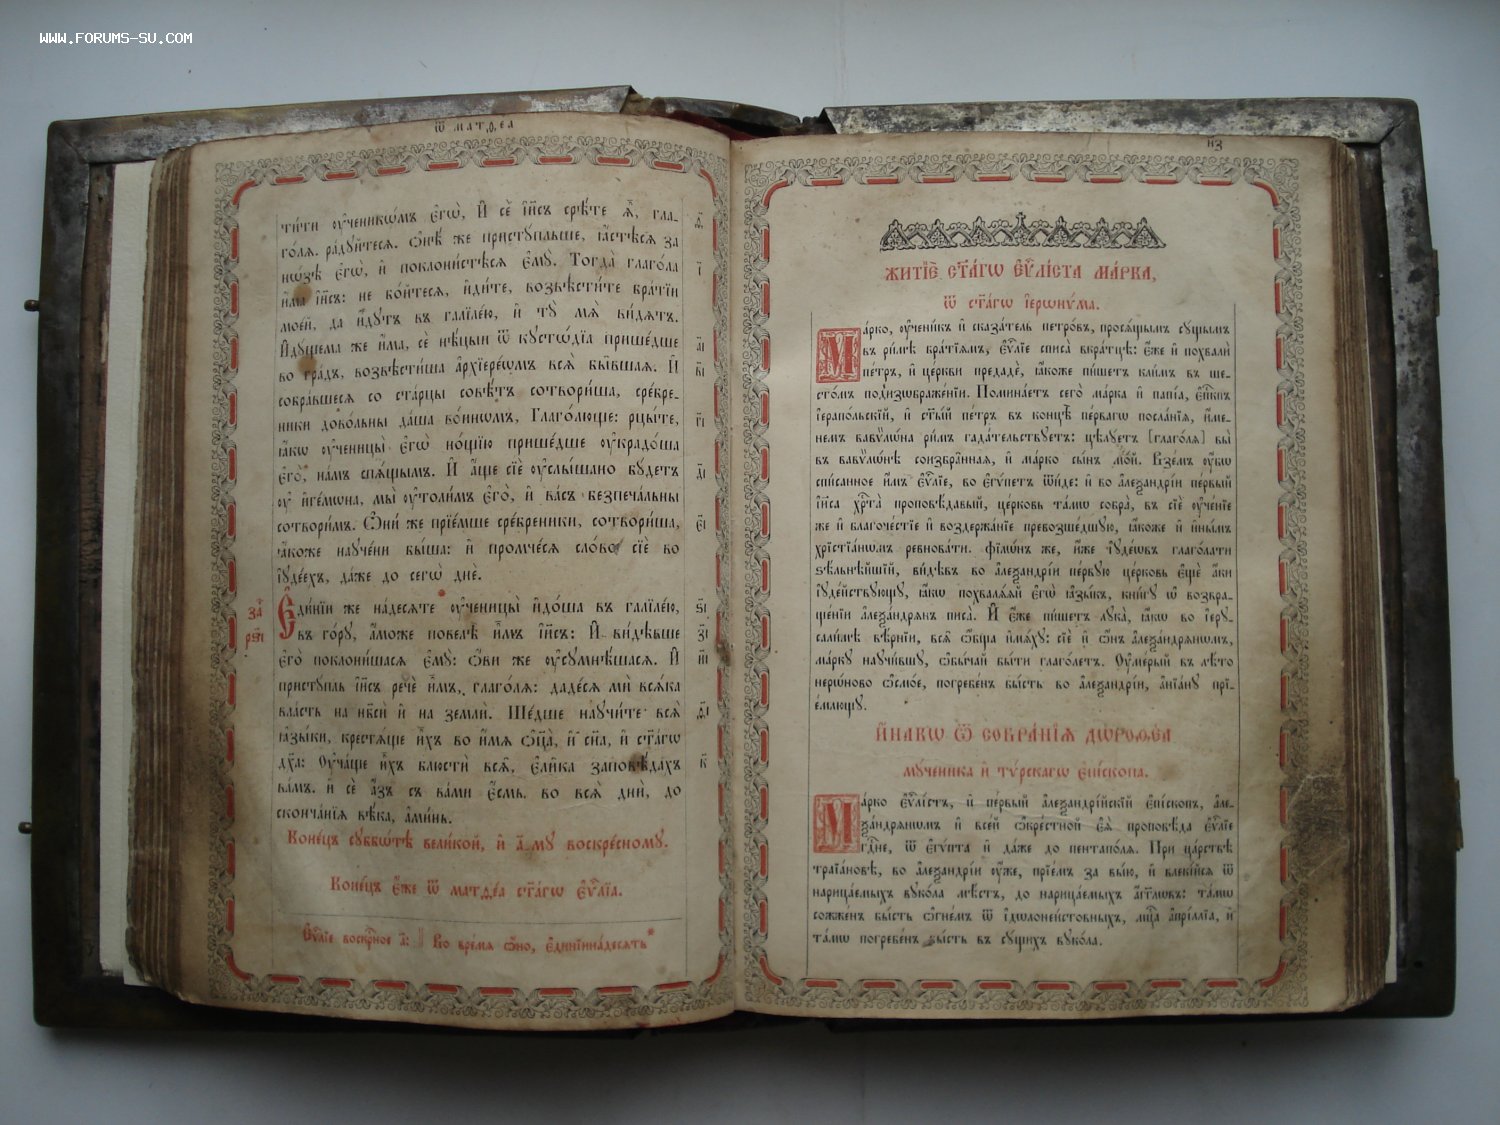 WWW.FORUMS-SU.COM
ѿ матѳеа
тити ᲂу҆ченикѡ́мъ є҆гѡ̀, И҆ сѐ і҆и҃съ срѣ́те ѧ҆̀, гла-
го́лѧ. ра́дꙋйтесѧ. Ѻ҆нѣ́ же пристꙋ́пльше, ꙗ҆́стѣсѧ за
но́зѣ є҆гѡ̀, и҆ поклони́стѣсѧ є҆мꙋ̀. Тогда̀ глаго́ла
и҆́ма і҆и҃съ: не бо́йтесѧ, и҆ди́те, возвѣсти́те бра́тїи
мое́й, да и҆́дꙋтъ въ галїле́ю, и҆ тꙋ̀ мѧ̀ ви́дѧтъ.
И҆дꙋ́щема же и҆́ма, сѐ нѣ́цыи ѿ кꙋстѡді́а прише́дше
во гра́дъ, возвѣсти́ша а҆рхїере́ѡмъ всѧ̑ бы̑вшаѧ. И҆
собра́вшесѧ со ста́рцы совѣ́тъ сотвори́ша, сре́бре-
ники дово́льны да́ша во́инѡмъ, Глаго́люще: рцы́те,
ꙗ҆́кѡ ᲂу҆ченицы̀ є҆гѡ̀ но́щїю прише́дше ᲂу҆крадо́ша
є҆го̀, на́мъ спѧ́щымъ. И҆ а҆́ще сїѐ ᲂу҆слы́шано бꙋ́детъ
ᲂу҆ и҆ге́мѡна, мы̀ ᲂу҆толи́мъ є҆го̀, и҆ ва́съ безпеча́льны
сотвори́мъ. Ѻ҆ни́ же прїе́мше сре́бреники, сотвори́ша,
ꙗ҆́коже наꙋче́ни бы́ша: и҆ промче́сѧ сло́во сїѐ во
і҆ꙋде́ехъ, да́же до сегѡ̀ днѐ.
Є҆ди́нїи же на́десѧте ᲂу҆ченицы̀ и҆до́ша въ галїле́ю,
въ го́рꙋ, а҆́може повелѣ̀ и҆̀мъ і҆и҃съ: И҆ ви́дѣвше
є҆го̀ поклони́шасѧ є҆мꙋ̀: ѻ҆́ви же ᲂу҆сꙋмнѣ́шасѧ. И҆
пристꙋ́пль і҆и҃съ речѐ и҆̀мъ, глаго́лѧ: даде́сѧ мѝ всѧ́ка
вла́сть на нб҃сѝ и҆ на землѝ. Ше́дше наꙋчи́те всѧ̑
ꙗ҆зы́ки, крестѧ́ще и҆̀хъ во и҆́мѧ ѻ҆ц҃а̀, и҆ сн҃а, и҆ ст҃а́гѡ
дх҃а: Оу҆ча́ще и҆̀хъ блюстѝ всѧ̑, є҆ли̑ка заповѣ́дахъ
ва́мъ. и҆ сѐ а҆́зъ съ ва́ми є҆́смь во всѧ̑ дни̑, до
сконча́нїѧ вѣ́ка, а҆ми́нь.
Коне́цъ сꙋббѡ́тѣ вели́кой, и҆ а҃-мꙋ воскре́сномꙋ.
Коне́цъ є҆́же ѿ матѳе́а ст҃а́гѡ є҆ѵⷢ҇лїа.
Є҆ѵⷢ҇лїе воскрⷭ҇ное а҃: Во вре́мѧ ѻ҆́но, є҆ди́нїинадесѧть*
за
рѕ҃і
д҃
і҃
а҃і
в҃і
г҃і
д҃і
є҃і
ѕ҃і
з҃і
и҃і
ѳ҃і
к҃
нз
ЖИТІѐ СТ҃А́ГѠ Є҆Ѵⷢ҇ЛІСТА МА́РКА,
ѿ ст҃а́гѡ і҆ерѡни́ма.
Ма́рко, ᲂу҆чени́къ и҆ сказа́тель петро́въ, просѧ́щымъ сꙋ́щымъ
въ ри́мѣ бра́тїѧмъ, є҆ѵⷢ҇лїе списа̀ вкра́тцѣ: є҆́же и҆ похвалѝ
пе́тръ, и҆ це́ркви предадѐ, ꙗ҆́коже пи́шетъ кли́мъ въ ше-
сто́мъ под̾изѡбраже́нїи. Помина́етъ сего̀ ма́рка и҆ папі́а, є҆пⷭ҇кпъ
і҆ерапо́льскїй, и҆ ст҃ы́й пе́тръ въ концѣ̀ пе́рвагѡ посла́нїѧ, и҆́ме-
немъ вавѷлѡ́на ри́мъ гада́тельствꙋетъ: цѣлꙋ́етъ [глаго́лѧ] вы̀
въ вавѷлѡ́нѣ соизбра́ннаѧ, и҆ ма́рко сы́нъ мо́й. Взе́мъ ᲂу҆̀бѡ
спи́санное и҆́мъ є҆ѵⷢ҇лїе, во є҆гѵ́петъ ѿи́де: и҆ во а҆леѯандрі́и пе́рвый
і҆и҃са хрⷭ҇та̀ проповѣ́давый, це́рковь та́мѡ собра̀, въ сїѐ ᲂу҆че́нїе
же и҆ благоче́стїе и҆ воздержа́нїе превозше́дшꙋю, ꙗ҆́коже и҆ и҆ны̑мъ
хрїстїа́нѡмъ ревнова́ти. фїлѡ́нъ же, и҆́же і҆ꙋде́ѡвъ глаго́лати
ѕѣльнѣ́йшїй, ви́дѣвъ во а҆леѯандрі́и пе́рвꙋю це́рковь є҆щѐ а҆́ки
і҆ꙋде́йствꙋющꙋ, ꙗ҆́кѡ похвалѧ́ѧй є҆гѡ̀ ꙗ҆зы́къ, кни́гꙋ ѡ҆ возвра-
ще́нїи а҆леѯандрѧ́нъ писа̀. И҆ є҆́же пи́шетъ лꙋка̀, ꙗ҆́кѡ во і҆ерꙋ-
сали́мѣ вѣ́рнїи, всѧ̑ ѻ҆́бща и҆мѧ́хꙋ: сїѐ и҆ ѻ҆́нъ а҆леѯандрѧ́нѡмъ,
ма́ркꙋ наꙋчи́вшꙋ, ѻ҆бы́чай бы́ти глаго́летъ. Оу҆ме́рый въ лѣ́то
неро́ново ѻ҆смо́е, погребе́нъ бы́сть во а҆леѯандрі́и, а҆нїа́нꙋ прї-
е́млющꙋ.
И҆НА́КѠ Ѿ СОБРА́НІѦ ДѠРОѲЕ́А
мꙋ́ченика и҆ тѵ́рскагѡ є҆пі́скопа.
Ма́рко є҆ѵⷢ҇лі́стъ, и҆ пе́рвый а҆леѯандрі́йскїй є҆пі́скопъ, а҆ле-
ѯандрѧ́нѡмъ и҆ все́й ѻ҆кре́стной є҆ѧ̀ проповѣ́да є҆ѵⷢ҇лїе
гдⷭ҇не, ѿ є҆гѵ́пта и҆ да́же до пентапо́лѧ. При ца́рствѣ
траїа́новѣ, во а҆леѯандрі́и ᲂу҆́же, прїе́мъ за вы́ю, и҆ влеки́йсѧ ѿ
нарица́емыхъ вꙋко́ла мѣ́стъ, до нарица́емыхъ а҆́гг҃лѡвъ: та́мѡ
сожже́нъ бы́сть ѻ҆гне́мъ ѿ і҆дѡлонеи́стовныхъ, мцⷭ҇а а҆прі́ллїа, и҆
та́мѡ погребе́нъ бы́сть въ сꙋ́щихъ вꙋко́ла.